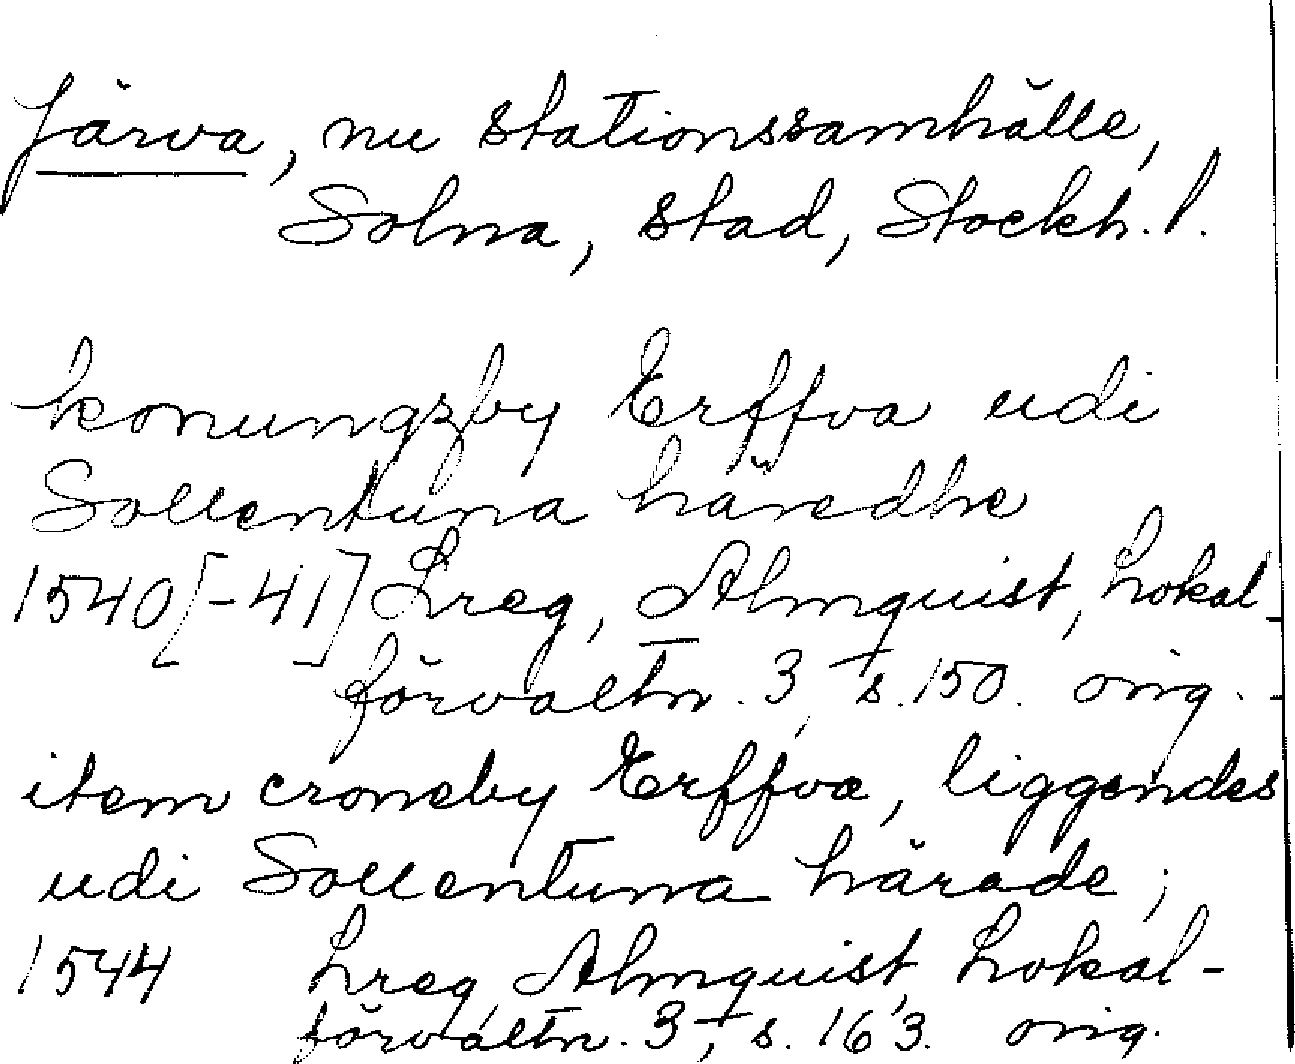 Järva, nu stationssamhälle,
Solna, stad, Stockh. l.
konungzby Erffva udi
Sollentuna häredhe
1540[-41] Lreg, Almquist, Lokal-
förvaltn. 3, s. 150. orig.-
item croneby Erffva, liggendes
udi Sollentuna härade;
1544 Lreg, Almquist, Lokal-
förvaltn. 3, s. 163. orig.